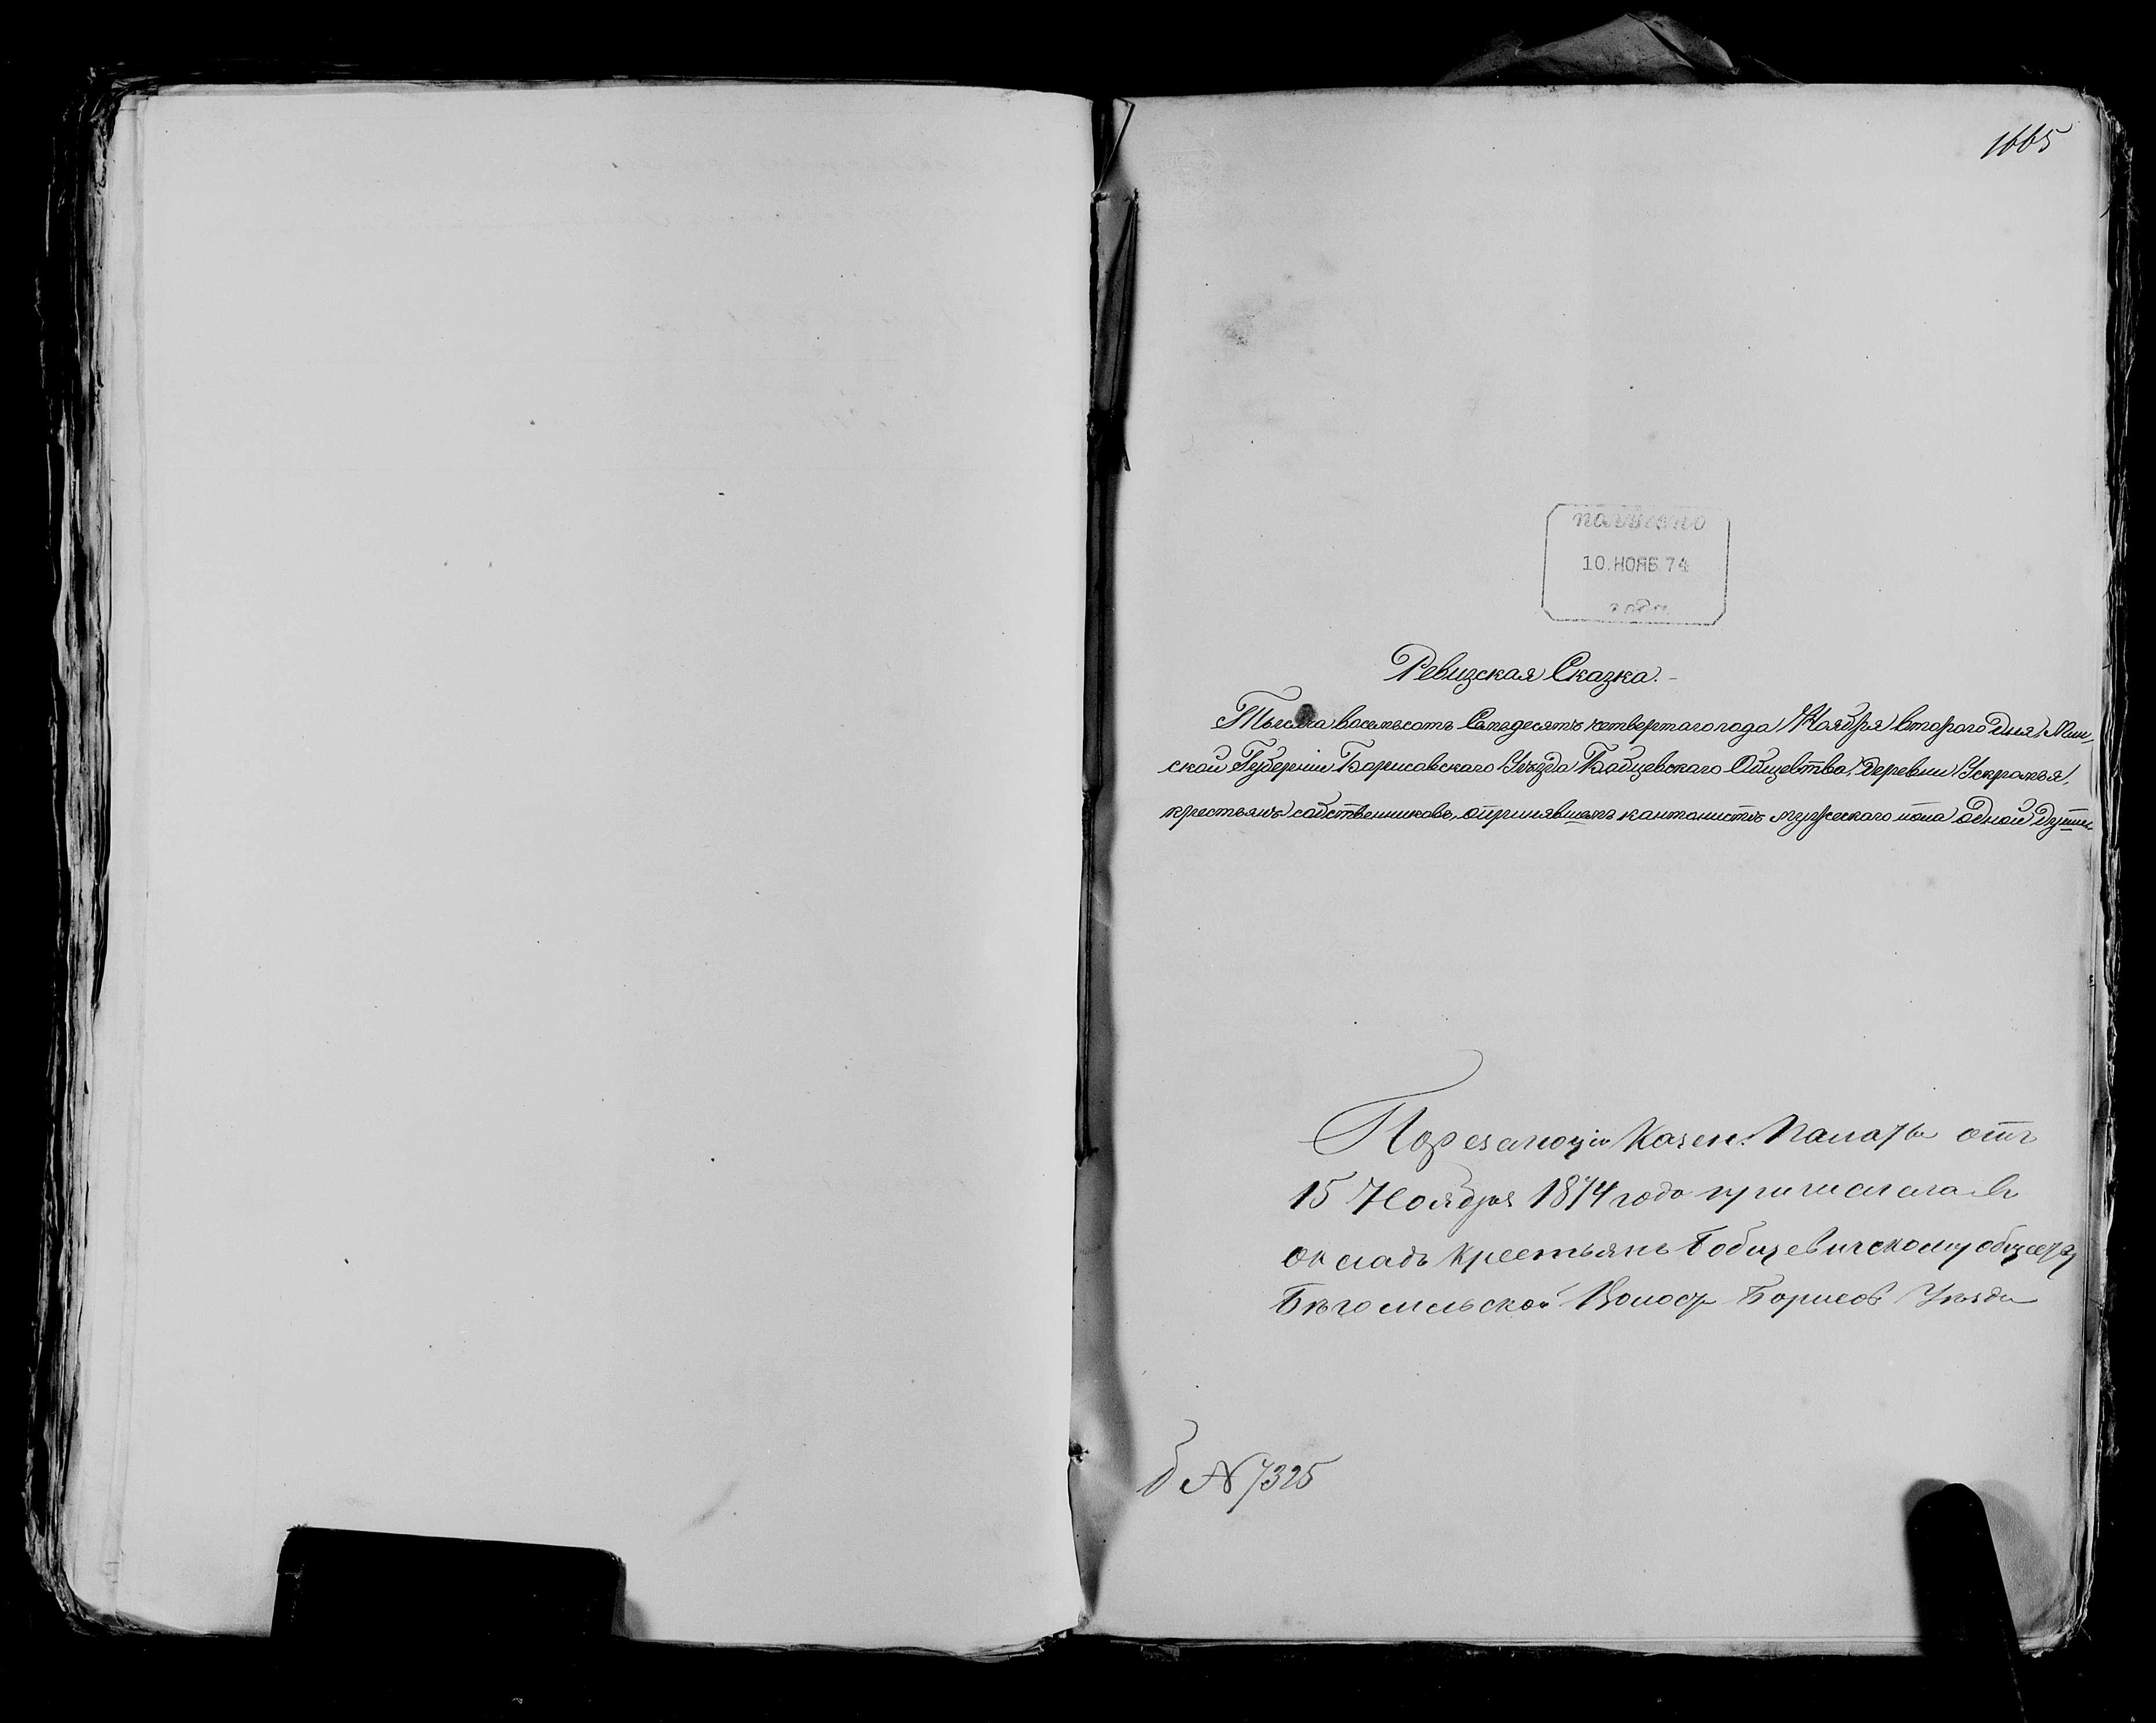 1665
получено
10. НОЯБ. 74
года
Ревизская Сказка. -
Тысяча восемьсотъ Семьдесятъ четвертаго года Ноября втораго дня, Мин-
ской Губерніи Борисовскаго Уѣзда Бабцевскаго Общества, деревни Ускромья,
крестьянъ собственниковъ, о принявшемъ кантонистѣ мужескаго пола одной души
По резолюціи Казен. Палаты отъ
15 Ноября 1874 года причислена въ
окладъ крестьянъ Бобцевичскому обществу
Бѣгомльской Волости Борисов Уѣзда
б № 7325